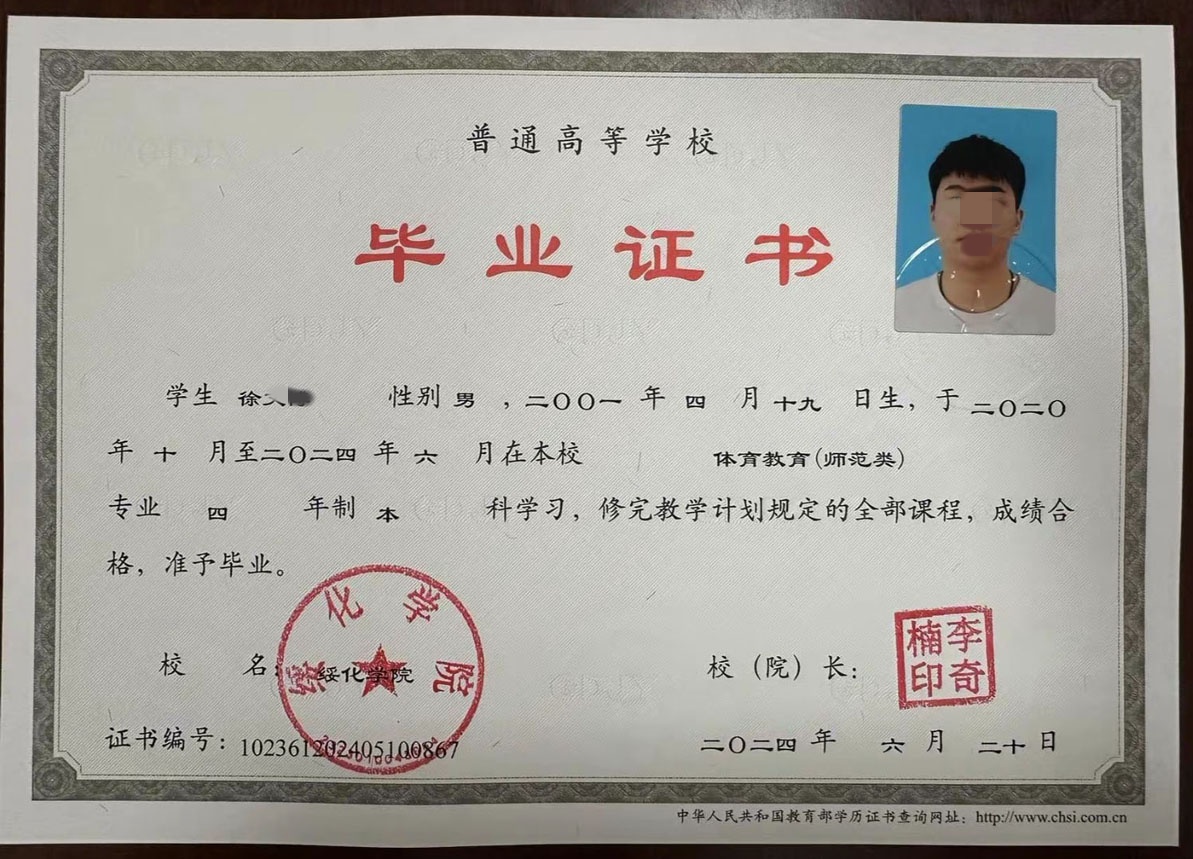 普通高等学校
毕业证书
学生 徐 性别 男 ，二〇〇一 年 四 月 十九 日生，于 二〇二〇
年 十 月至二〇二四 年 六 月在本校 体育教育(师范类)
专业 四 年制 本 科学习，修完教学计划规定的全部课程，成绩合
格，准予毕业。
校 名：绥化学院
绥化学院
校（院）长：
李奇楠印
证书编号：102361202405100867
二〇二四 年 六 月 二十 日
中华人民共和国教育部学历证书查询网址：http://www.chsi.com.cn